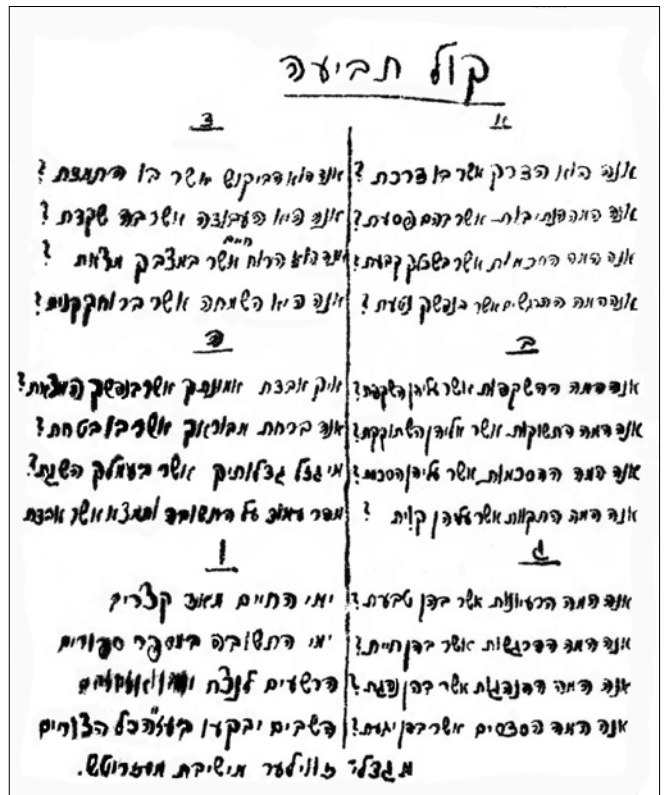 קול תביעה
א
אנה הוא הצדק אשר בו דרכת ?
אנה המה הנתיבות אשר בהם פסעת ?
אנה המה החכמות אשר בשכלך קבעת ?
אנה המה הרגשים אשר בנפשך נטעת ?
ב
אנה המה ההשקפות אשר עליהן השקפת?
אנה המה התשוקות אשר אליהן השתוקקת?
אנה המה ההסכמות אשר עליהן הסכמת?
אנה המה התקוות אשר עליהן קוית ?
ג
אנה המה הרעיונות אשר בהן טבעת?
אנה המה ההרגשות אשר בהן חיית?
אנה המה ההנהגות אשר בהן נהגת?
אנה המה אשר בהן יגעת?
ד
אנה הוא אשר בו ?
אנה היא העבודה אשר בה שקדת ?
אנה הוא הרוח חיים אשר במצבך מצאת ?
אנה היא השמחה אשר ברוחך קנית ?
ה
איך אבדת אמונתך אשר בנפשך המצאת?
אנה ברחת מבוראך אשר בו בטחת?
מי גזל גדלותיך אשר בעמלך השגת?
מהר עמוד על התשובה ותמצא אשר אבדת
ו
ימי החיים מאוד קצרים
ימי התשובה במספר ספורים
הרשעים לנצח
השבים יבקעו בעז"ה כל הצורים
מגדלי' זווילער מישיבת מעזריטש.